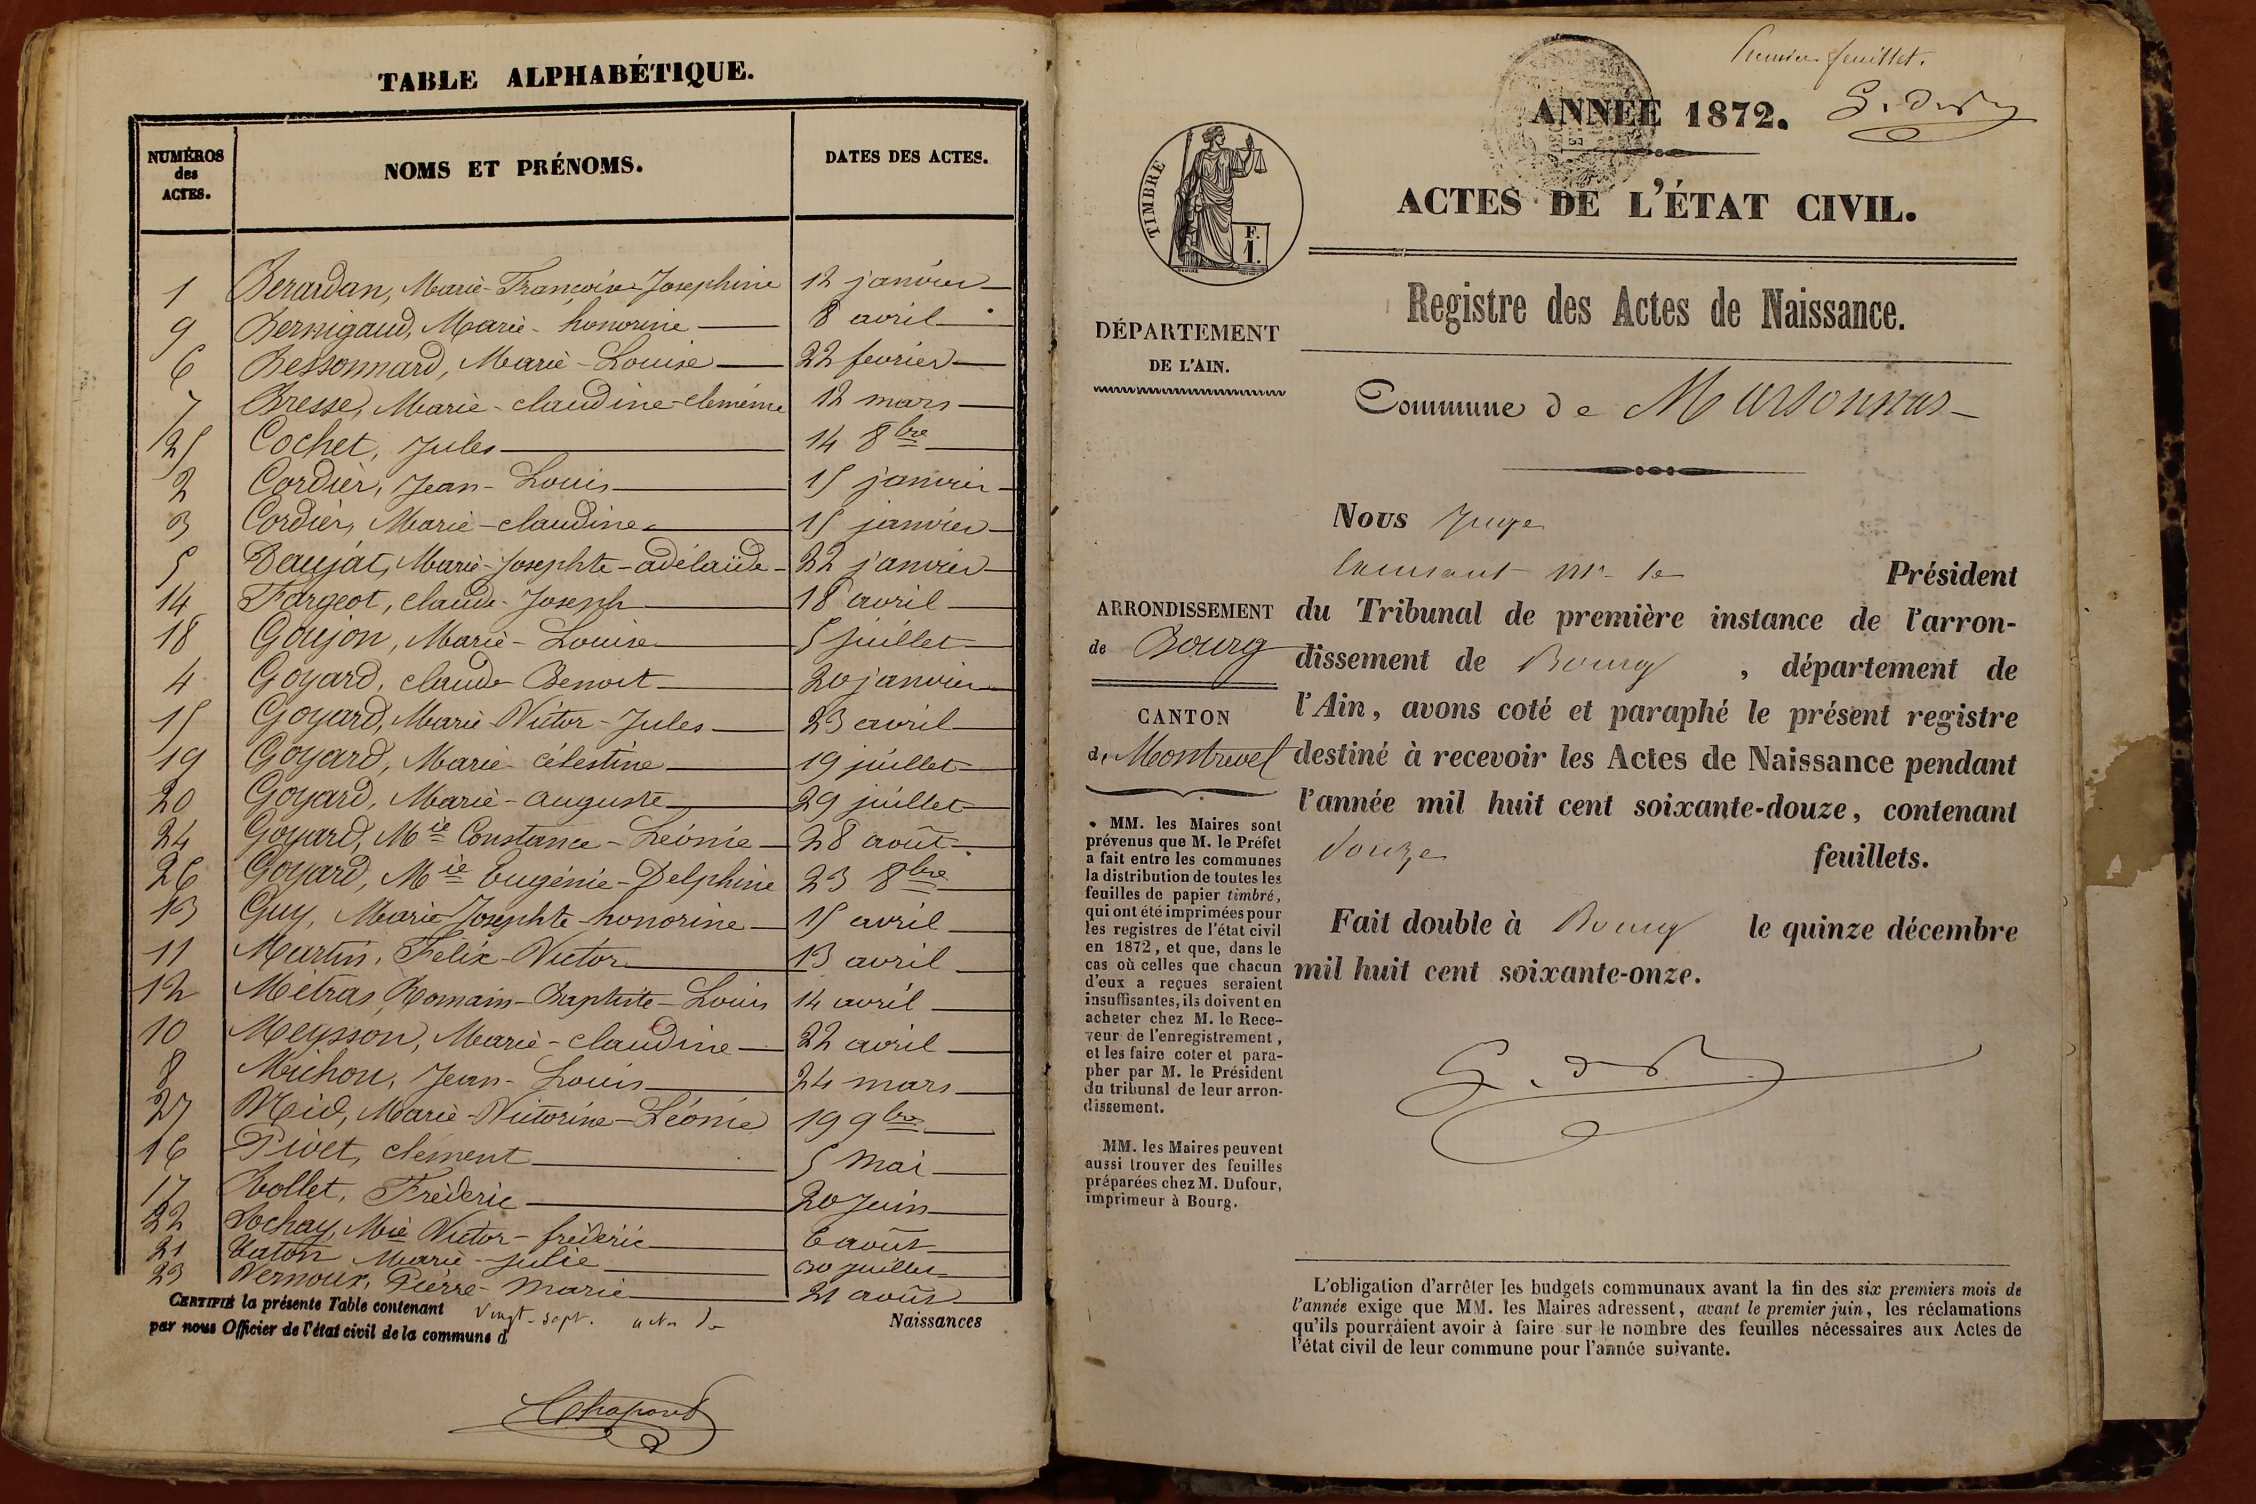 TABLE ALPHABÉTIQUE.
NUMÉROS des ACTES. NOMS ET PRÉNOMS. DATES DES ACTES.
1 Berardan, Marie-Françoise Josephine 12 janvier
9 Bernigaud, Marie-honorine 8 avril
6 Bessonnard, Marie-Louise 22 fevrier
7 Bresse, Marie-claudine-clemence 12 mars
25 Cochet, Jules 14 8bre
2 Cordier, Jean-Louis 15 janvier
3 Cordier, Marie-claudine 15 janvier
5 Daujat, Marie-Josephte-adélaïde 22 janvier
14 Fargeot, claude-Joseph 18 avril
18 Goujon, Marie-Louise 5 juillet
4 Goyard, claude Benoit 20 janvier
15 Goyard, Marie Victor-Jules 23 avril
19 Goyard, Marie célestine 19 juillet
20 Goyard, Marie-auguste 29 juillet
24 Goyard, Mie Constance-Léonie 28 août
26 Goyard, Mie Eugénie-Delphine 23 8bre
13 Guy, Marie Josephte-honorine 15 avril
11 Martin, Felix-Victor 13 avril
12 Métras, Romain-Baptiste-Louis 14 avril
10 Meysson, Marie-claudine 22 avril
8 Michon, Jean-Louis 24 mars
27 Nid, Marie-Victorine-Léonie 19 9bre
16 Pivet, clément 5 Mai
17 Rollet, Fréderic 20 Juin
22 Sochay, Mie Victor-fréderic 6 août
21 Vaton Marie-Julie 30 juillet
23 Vernoux, Pierre-Marie 21 août
CERTIFIÉ la présente Table contenant vingt-sept actes de Naissances
par nous Officier de l'état civil de la commune d
Chapond
Premier feuillet.
ANNÉE 1872.
TIMBRE
F.
1.
ACTES DE L'ÉTAT CIVIL.
Registre des Actes de Naissance.
DÉPARTEMENT
DE L'AIN.
Commune de Marsonnas
ARRONDISSEMENT
de Bourg
CANTON
de Montrevel
• MM. les Maires sont
prévenus que M. le Préfet
a fait entre les communes
la distribution de toutes les
feuilles de papier timbré,
qui ont été imprimées pour
les registres de l'état civil
en 1872, et que, dans le
cas où celles que chacun
d'eux a reçues seraient
insuffisantes, ils doivent en
acheter chez M. le Rece-
veur de l'enregistrement,
et les faire coter et para-
pher par M. le Président
du tribunal de leur arron-
dissement.
MM. les Maires peuvent
aussi trouver des feuilles
préparées chez M. Dufour,
imprimeur à Bourg.
Nous Juge
remplaçant Mr le Président
du Tribunal de première instance de l'arron-
dissement de Bourg, département de
l'Ain, avons coté et paraphé le présent registre
destiné à recevoir les Actes de Naissance pendant
l'année mil huit cent soixante-douze, contenant
douze feuillets.
Fait double à Bourg le quinze décembre
mil huit cent soixante-onze.
L'obligation d'arrêter les budgets communaux avant la fin des six premiers mois de
l'année exige que MM. les Maires adressent, avant le premier juin, les réclamations
qu'ils pourraient avoir à faire sur le nombre des feuilles nécessaires aux Actes de
l'état civil de leur commune pour l'année suivante.